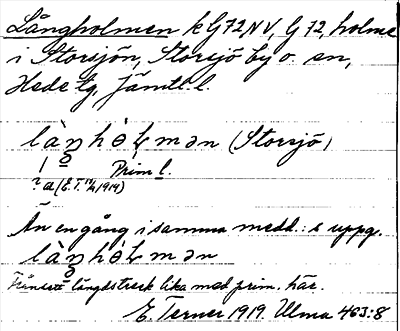 Långholmen k G72NV, G 72, holme
i Storsjön, Storsjö by o. sn,
Hede tg, Jämtl. l.
làŋhòɫmən (Storsjö)
Prim l.
? a (E.T. 1919)
Än en gång i samma medd.:s uppg.
làŋhòɫmən
längdstreck lika med prim. här.
E. Terner 1919. Ulma 463:8